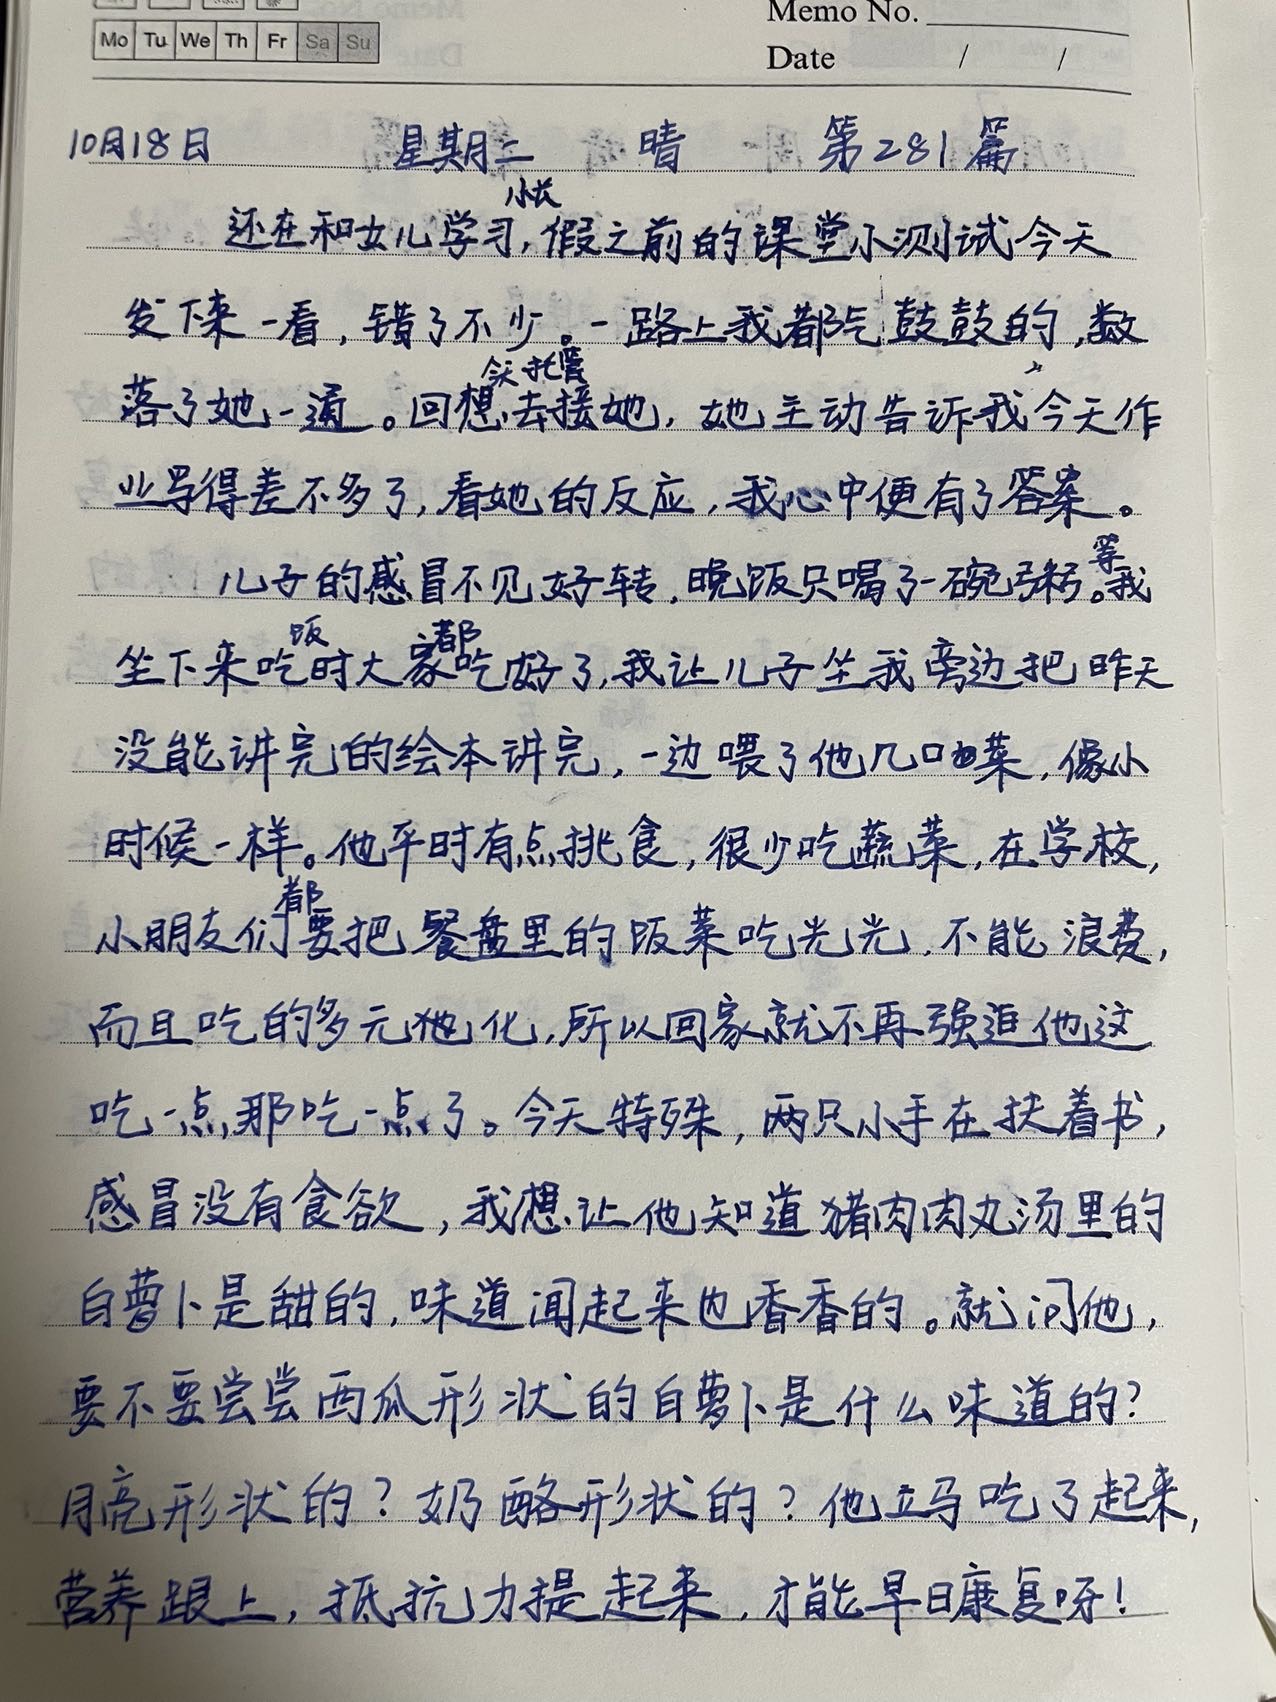 Memo No.
Mo Tu We Th Fr Sa Su
Date / /
10月18日 星期三 晴 第281篇
还在和女儿学习,小长假之前的课堂小测试今天
发下来一看,错了不少。一路上我都气鼓鼓的,数
落了她一通。回想今天托管去接她,她主动告诉我今天作
业写得差不多了,看她的反应,我心中便有了答案。
儿子的感冒不见好转,晚饭只喝了一碗粥。等我
坐下来吃饭时大家都吃好了,我让儿子坐我旁边把昨天
没能讲完的绘本讲完,一边喂了他几口菜,像小
时候一样。他平时有点挑食,很少吃蔬菜,在学校,
小朋友们都要把餐盘里的饭菜吃光光,不能浪费,
而且吃的多元化,所以回家就不再强迫他这
吃一点那吃一点了。今天特殊,两只小手在扶着书,
感冒没有食欲,我想让他知道猪肉肉丸汤里的
白萝卜是甜的,味道闻起来也香香的。就问他,
要不要尝尝西瓜形状的白萝卜是什么味道的?
月亮形状的?奶酪形状的?他立马吃了起来,
营养跟上,抵抗力提起来,才能早日康复呀!